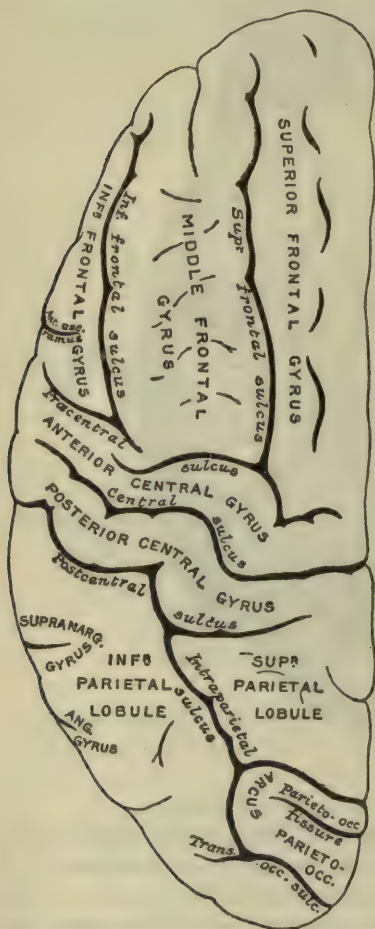 SUPERIOR FRONTAL GYRUS
Supr frontal sulcus
MIDDLE FRONTAL
GYRUS
Inf. frontal sulcus
INFR FRONTAL
GYRUS
Ant. asc.
ramus
Præcentral sulcus
ANTERIOR CENTRAL GYRUS
Central sulcus
POSTERIOR CENTRAL GYRUS
Postcentral sulcus
SUPRAMARG.
GYRUS
INFR
PARIETAL
LOBULE
ANG.
GYRUS
Intraparietal
sulcus
SUPR
PARIETAL
LOBULE
Parieto-occ.
fissure
ARCUS
PARIETO-
OCC.
Trans.
occ. sulc.